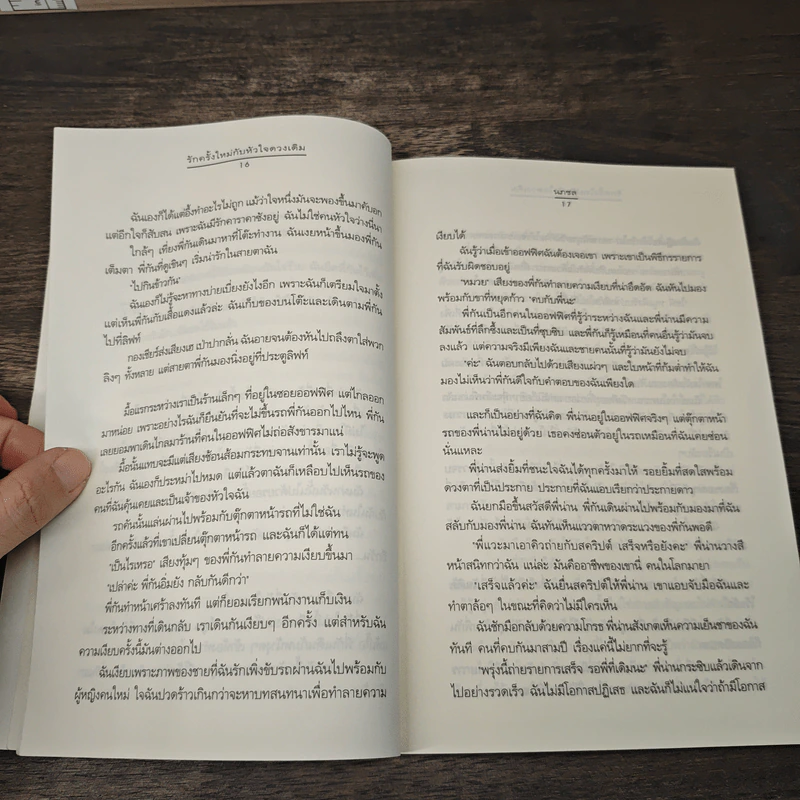 รักครั้งใหม่กับหัวใจดวงเดิม
16
ฉันเองก็ได้แต่อึ้งทำอะไรไม่ถูก แม้ว่าใจหนึ่งมันจะพองขึ้นมาคับอก
แต่อีกใจก็สับสน เพราะฉันมีรักคาราคาซังอยู่ ฉันไม่ใช่คนหัวใจว่างนี่นา
ใกล้ๆ เที่ยงพี่กันเดินมาหาที่โต๊ะทำงาน ฉันเงยหน้าขึ้นมองพี่กัน
เต็มตา พี่กันที่ดูเขินๆ เริ่มน่ารักในสายตาฉัน
"ไปกินข้าวกัน"
ฉันเองก็ไม่รู้จะหาทางบ่ายเบี่ยงยังไงอีก เพราะฉันก็เตรียมใจมาตั้ง
แต่เห็นพี่กันกับเสื้อแดงแล้วล่ะ ฉันเก็บของบนโต๊ะและเดินตามพี่กัน
ไปที่ลิฟท์
กองเชียร์ส่งเสียงเฮ เป่าปากลั่น ฉันอายจนต้องหันไปถลึงตาใส่พวก
ลิงๆ ทั้งหลาย แต่สายตาพี่กันมองนิ่งอยู่ที่ประตูลิฟท์
มื้อแรกระหว่างเราเป็นร้านเล็กๆ ที่อยู่ในซอยออฟฟิศ แต่ไกลออก
มาหน่อย เพราะอย่างไรฉันก็ยืนยันที่จะไม่ขึ้นรถพี่กันออกไปไหน พี่กัน
เลยยอมพาเดินไกลมาร้านที่คนในออฟฟิศไม่ถ่อสังขารมาแน่
มื้อนั้นแทบจะมีแต่เสียงช้อนส้อมกระทบจานเท่านั้น เราไม่รู้จะพูด
อะไรกัน ฉันเองก็ประหม่าไปหมด แต่แล้วตาฉันก็เหลือบไปเห็นรถของ
คนที่ฉันคุ้นเคยและเป็นเจ้าของหัวใจฉัน
รถคันนั้นแล่นผ่านไปพร้อมกับตุ๊กตาหน้ารถที่ไม่ใช่ฉัน
อีกครั้งแล้วที่เขาเปลี่ยนตุ๊กตาหน้ารถ และฉันก็ได้แต่ทน
"เป็นไรเหรอ" เสียงทุ้มๆ ของพี่กันทำลายความเงียบขึ้นมา
"เปล่าค่ะ พี่กันอิ่มยัง กลับกันดีกว่า"
พี่กันทำหน้าเศร้าลงทันที แต่ก็ยอมเรียกพนักงานเก็บเงิน
ระหว่างทางที่เดินกลับ เราเดินกันเงียบๆ อีกครั้ง แต่สำหรับฉัน
ความเงียบครั้งนี้มันต่างออกไป
ฉันเงียบเพราะภาพของชายที่ฉันรักเพิ่งขับรถผ่านฉันไปพร้อมกับ
ผู้หญิงคนใหม่ ใจฉันปวดร้าวเกินกว่าจะหาบทสนทนาเพื่อทำลายความ
นภชล
17
เงียบได้
ฉันรู้ว่าเมื่อเข้าออฟฟิศฉันต้องเจอเขา เพราะเขาเป็นพิธีกรรายการ
ที่ฉันรับผิดชอบอยู่
"หมวย" เสียงของพี่กันทำลายความเงียบที่น่าอึดอัด ฉันหันไปมอง
พร้อมกับขาที่หยุดก้าว "คบกับพี่นะ"
พี่กันเป็นอีกคนในออฟฟิศที่รู้ว่าระหว่างฉันและพี่น่านมีความ
สัมพันธ์ที่ลึกซึ้งและเป็นที่ซุบซิบ และพี่กันก็รู้เหมือนที่คนอื่นรู้ว่ามันจบ
ลงแล้ว แต่ความจริงมีเพียงฉันและชายคนนั้นที่รู้ว่ามันยังไม่จบ
"ค่ะ" ฉันตอบกลับไปด้วยเสียงแผ่วๆ และใบหน้าที่ก้มต่ำทำให้ฉัน
มองไม่เห็นว่าพี่กันดีใจกับคำตอบของฉันเพียงใด
และก็เป็นอย่างที่ฉันคิด พี่น่านอยู่ในออฟฟิศจริงๆ แต่ตุ๊กตาหน้า
รถของพี่น่านไม่อยู่ด้วย เธอคงซ่อนตัวอยู่ในรถเหมือนที่ฉันเคยซ่อน
นั่นแหละ
พี่น่านส่งยิ้มที่ชนะใจฉันได้ทุกครั้งมาให้ รอยยิ้มที่สดใสพร้อม
ดวงตาที่เป็นประกาย ประกายที่ฉันแอบเรียกว่าประกายดาว
ฉันยกมือขึ้นสวัสดีพี่น่าน พี่กันเดินผ่านไปพร้อมกับมองมาที่ฉัน
สลับกับมองพี่น่าน ฉันทันเห็นแววตาหวาดระแวงของพี่กันพอดี
"พี่แวะมาเอาคิวถ่ายกับสคริปต์ เสร็จหรือยังคะ" พี่น่านวางสี
หน้าสนิทกว่าฉัน แน่ล่ะ มันคืออาชีพของเขานี่ คนในโลกมายา
"เสร็จแล้วค่ะ" ฉันยื่นสคริปต์ให้พี่น่าน เขาแอบจับมือฉันและ
ทำตาล้อๆ ในขณะที่คิดว่าไม่มีใครเห็น
ฉันชักมือกลับด้วยความโกรธ พี่น่านสังเกตเห็นความเย็นชาของฉัน
ทันที คนที่คบกันมาสามปี เรื่องแค่นี้ไม่ยากที่จะรู้
"พรุ่งนี้ถ่ายรายการเสร็จ รอพี่ที่เดิมนะ" พี่น่านกระซิบแล้วเดินจาก
ไปอย่างรวดเร็ว ฉันไม่มีโอกาสปฏิเสธ และฉันก็ไม่แน่ใจว่าถ้ามีโอกาส